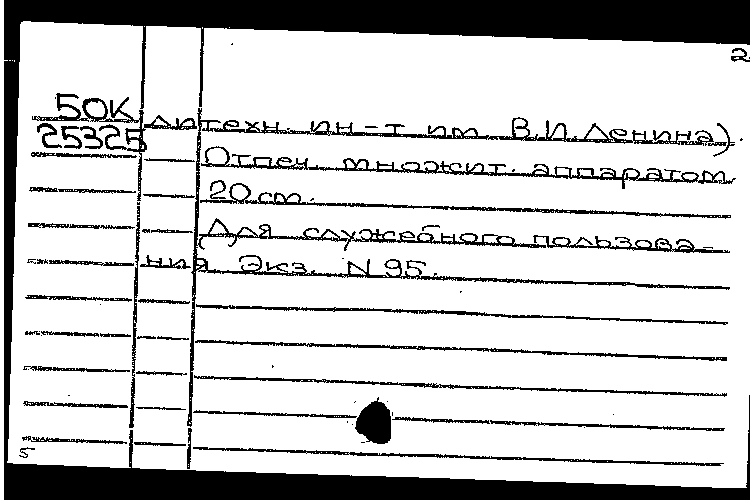 2
50К литехн. ин-т им. В.И. Ленина).
25325
Отпеч. множит. аппаратом.
20 см.
Для служебного пользова-
ния. Экз. N 95.
5